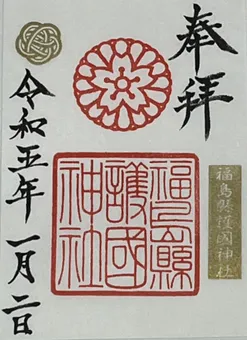 奉拝
福島縣護國神社
福島縣
護國
神社
令和五年 一月二日